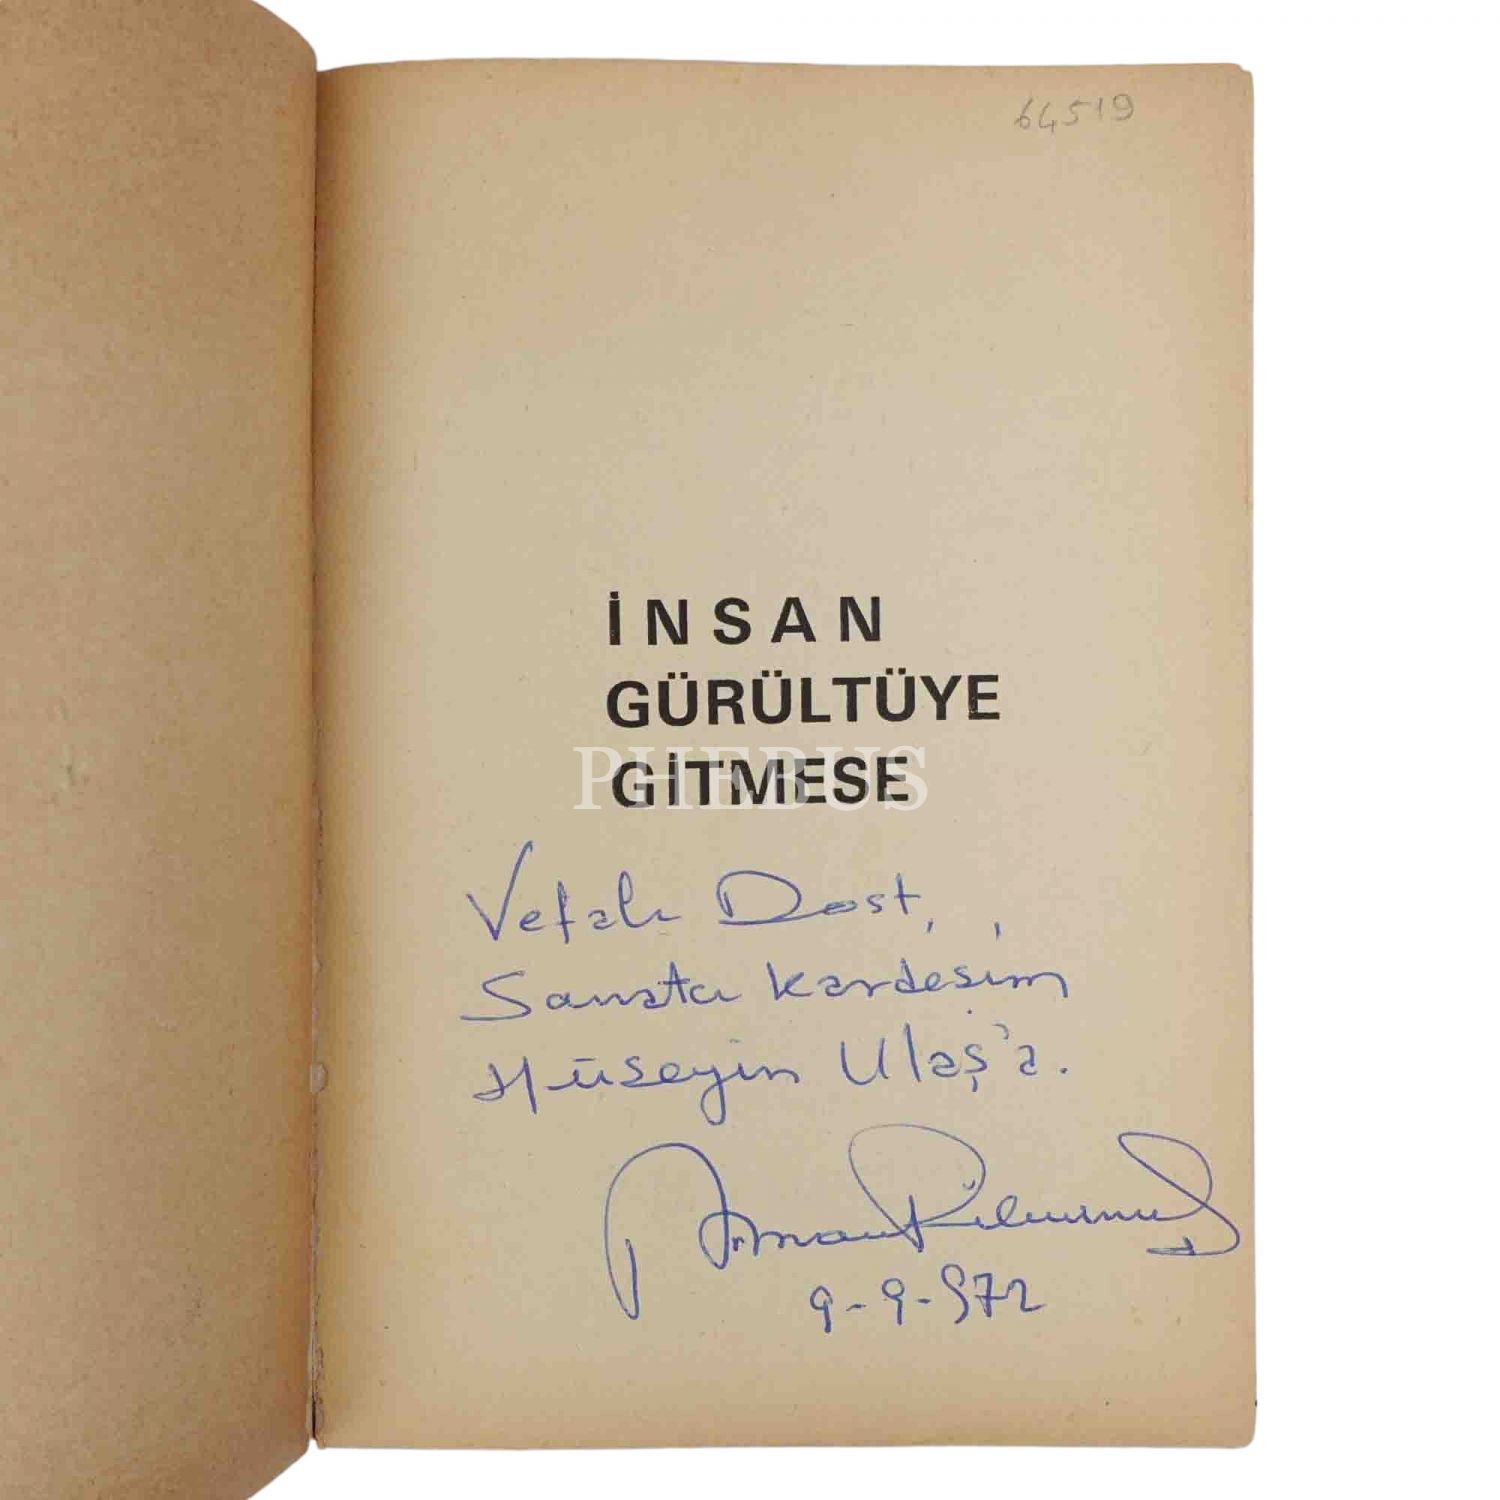 64519
İNSAN
GÜRÜLTÜYE
GİTMESE
PHEBUS
Vefalı Dost,
Sanatcı Kardeşim
Hüseyin Ulaş'a.
9-9-972